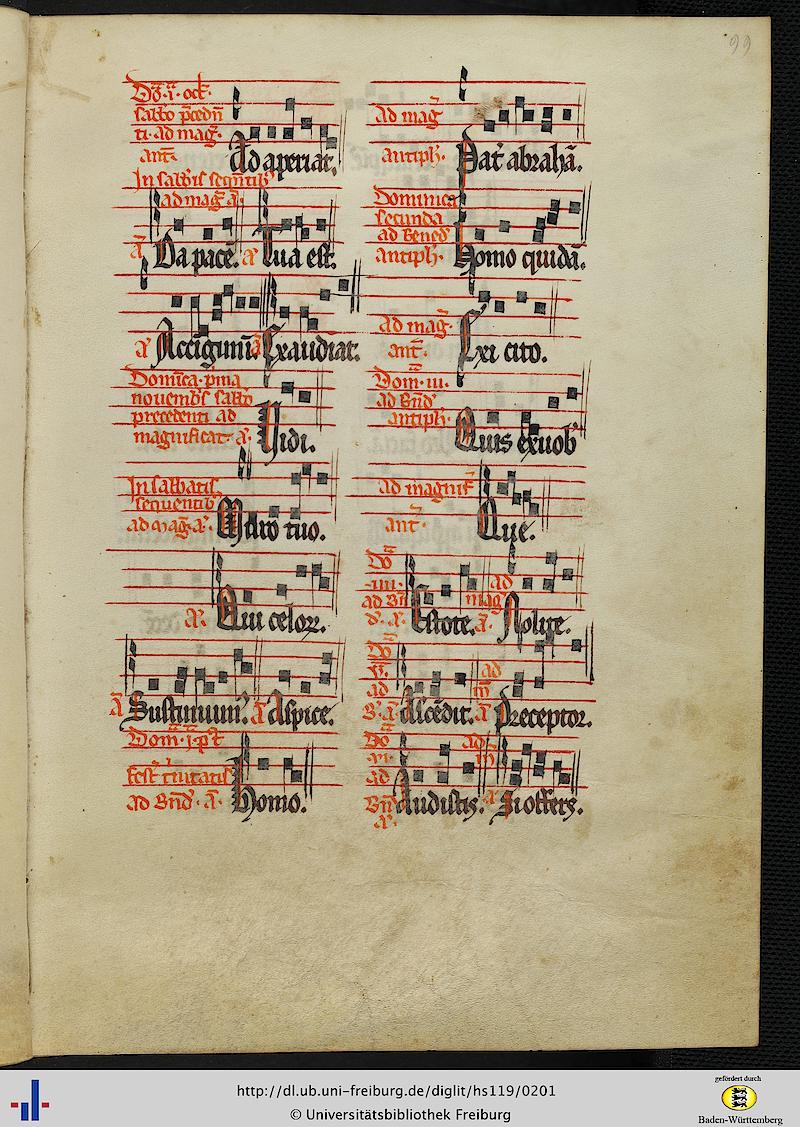 99
Do. i. oct.
sabbo p̄cedn̄
ti. ad maḡ.
ant̄. Ad aperiat.
In sabb̄is seqūntib̄
ad maḡ. ā.
ā Da pace. a Tua est.
a Accigimini. a Exaudiat.
Domīca p̄ma
nouemb̄s sabb̄o
precedenti ad
magnificat. a. Vidi.
In sabbatis
sequentib̄
ad maḡ. a. Muro tuo.
a. Qui celor.
ā Sustinuim̄. ā Aspice.
Dom̄. i. p̄t
fest̄ t̄nitatis
ad Bn̄d̄. ā. Homo.
ad maḡ
antiph. Pat̄ abrahā.
Dominica
secunda
ad Bened̄
antiph. Homo quidā.
ad maḡ.
ant̄. Exi cito.
Dom̄. iii.
ad Bn̄d̄
antiph. Quis ex uob̄
ad magnif̄
ant̄. Que.
Do
iiii. ad
ad Bn̄ maḡ
d̄. a. Estote. ā. Nolite.
Do
v. ad
ad m̄
B. ā Ascēdit. ā Preceptor.
Do ad
vi. m̄
ad
Bn̄ Audistis. a Si offers.
a.
http://dl.ub.uni-freiburg.de/diglit/hs119/0201
© Universitätsbibliothek Freiburg
gefördert durch
Baden-Württemberg